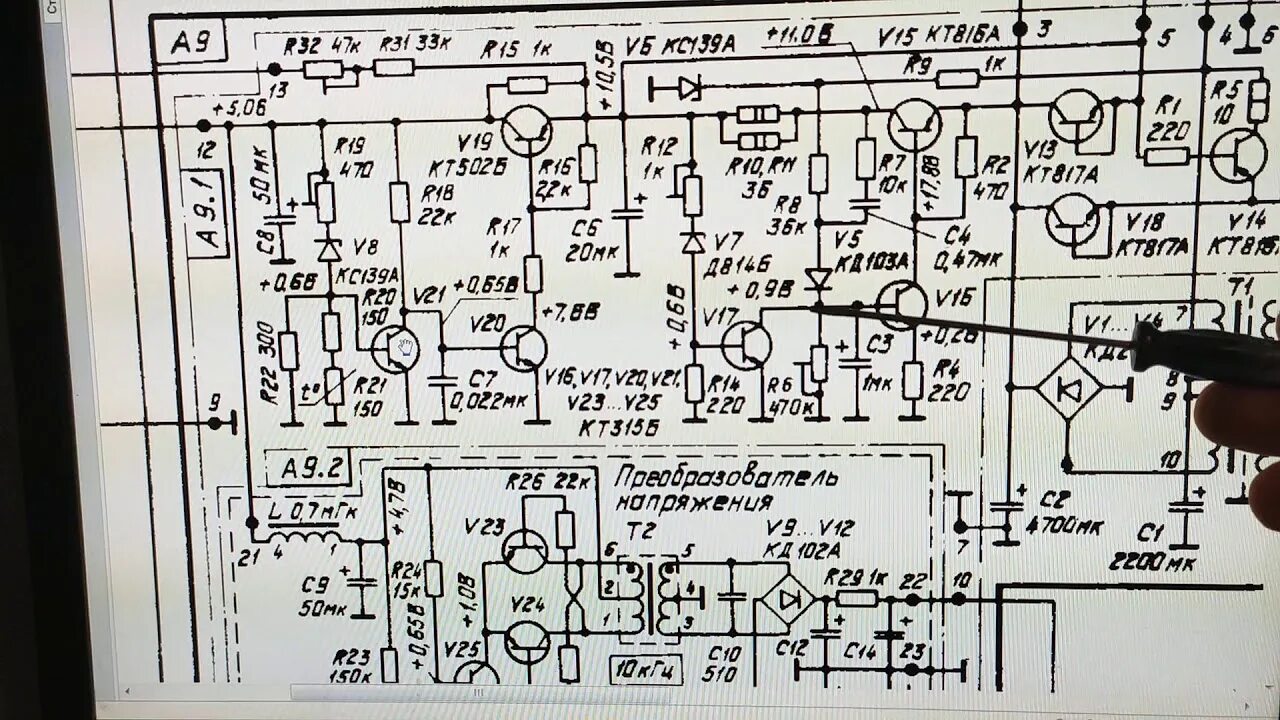 А9
R32 47к
R31 33к
R15 1к
+10,5В
V6 КС139А
+11,0В
V15 КТ816А
3
5
4
6
13
+5,0В
12
R9
1к
R1
220
R5
10
А9.1
50мк
C8
R19
470
R18
22к
V19
КТ502Б
R16
2,2к
R17
1к
R12
1к
R10, R11
36
R8
36к
R7
10к
+17,8В
R2
470
V13
КТ817А
V18
КТ817А
V14
C6
20мк
V8
КС139А
+0,6В
R20
150
V21
+0,65В
V7
Д814Б
V5
КД103А
C4
0,47мк
+0,9В
V16
V20
+7,8В
+0,6В
V17
C3
1мк
R4
220
T1
V1...V4
7
R22 300
t°
R21
150
C7
0,022мк
V16, V17, V20, V21,
V23...V25
КТ315Б
R14
220
R6
470к
8
9
9
10
А9.2
L 0,7мГк
21
4
1
+4,7В
R26 22к
Преобразователь
напряжения
V23
T2
V9...V12
КД102А
7
C2
4700мк
C1
2200мк
C9
50мк
R24
15к
+1,0В
V24
6
2
1
5
4
3
R29 1к
22
10
R23
150к
+0,65В
V25
10кГц
C10
510
C12
C14
23